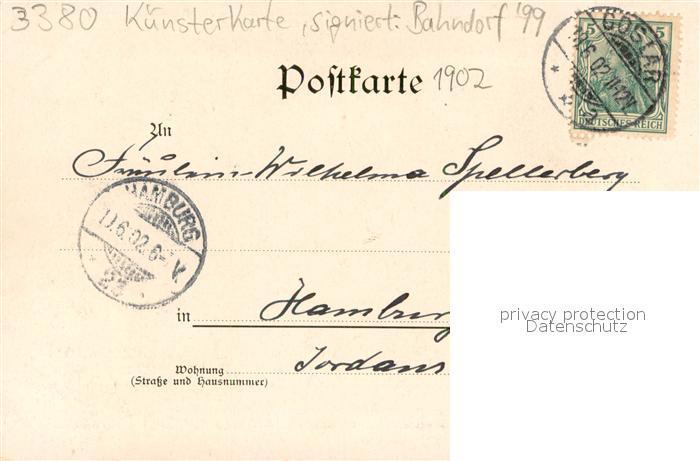 3380 Künsterkarte, signiert: Bahndorf '99
Postkarte 1902
5 5
DEUTSCHES REICH
GOSLAR
An
Fräulein Wilhelma Spellerberg
HAMBURG
11.6.02.6-7V.
in Hamburg
Jordans
Wohnung
(Straße und Hausnummer)
privacy protection
Datenschutz